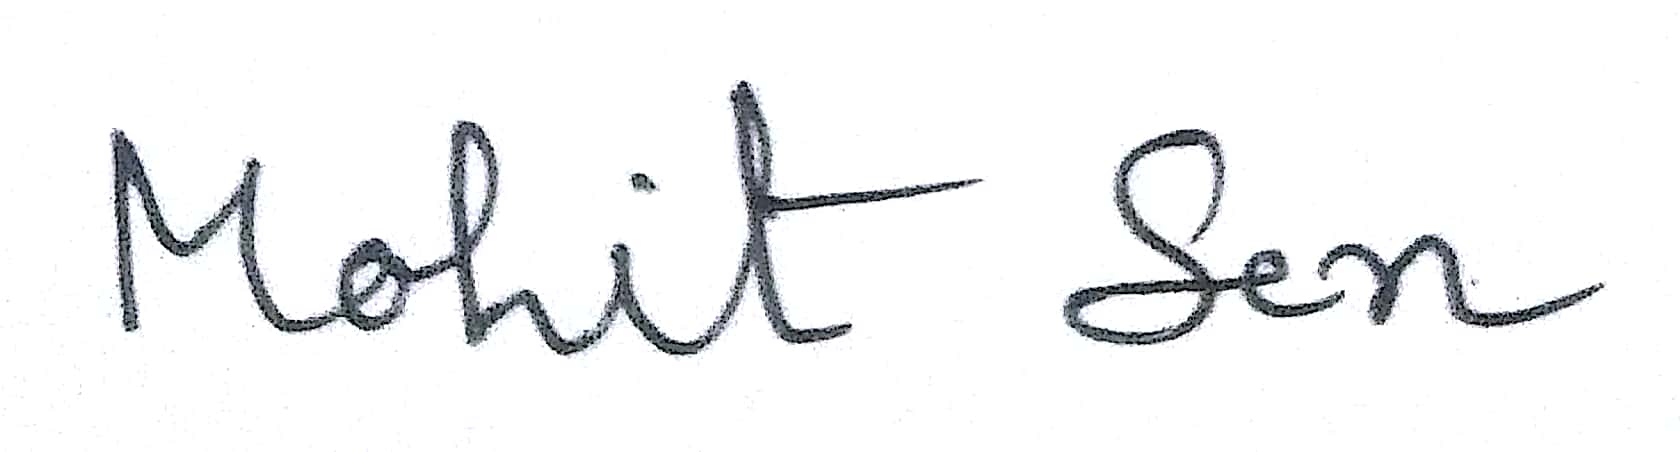 Mohit Sen